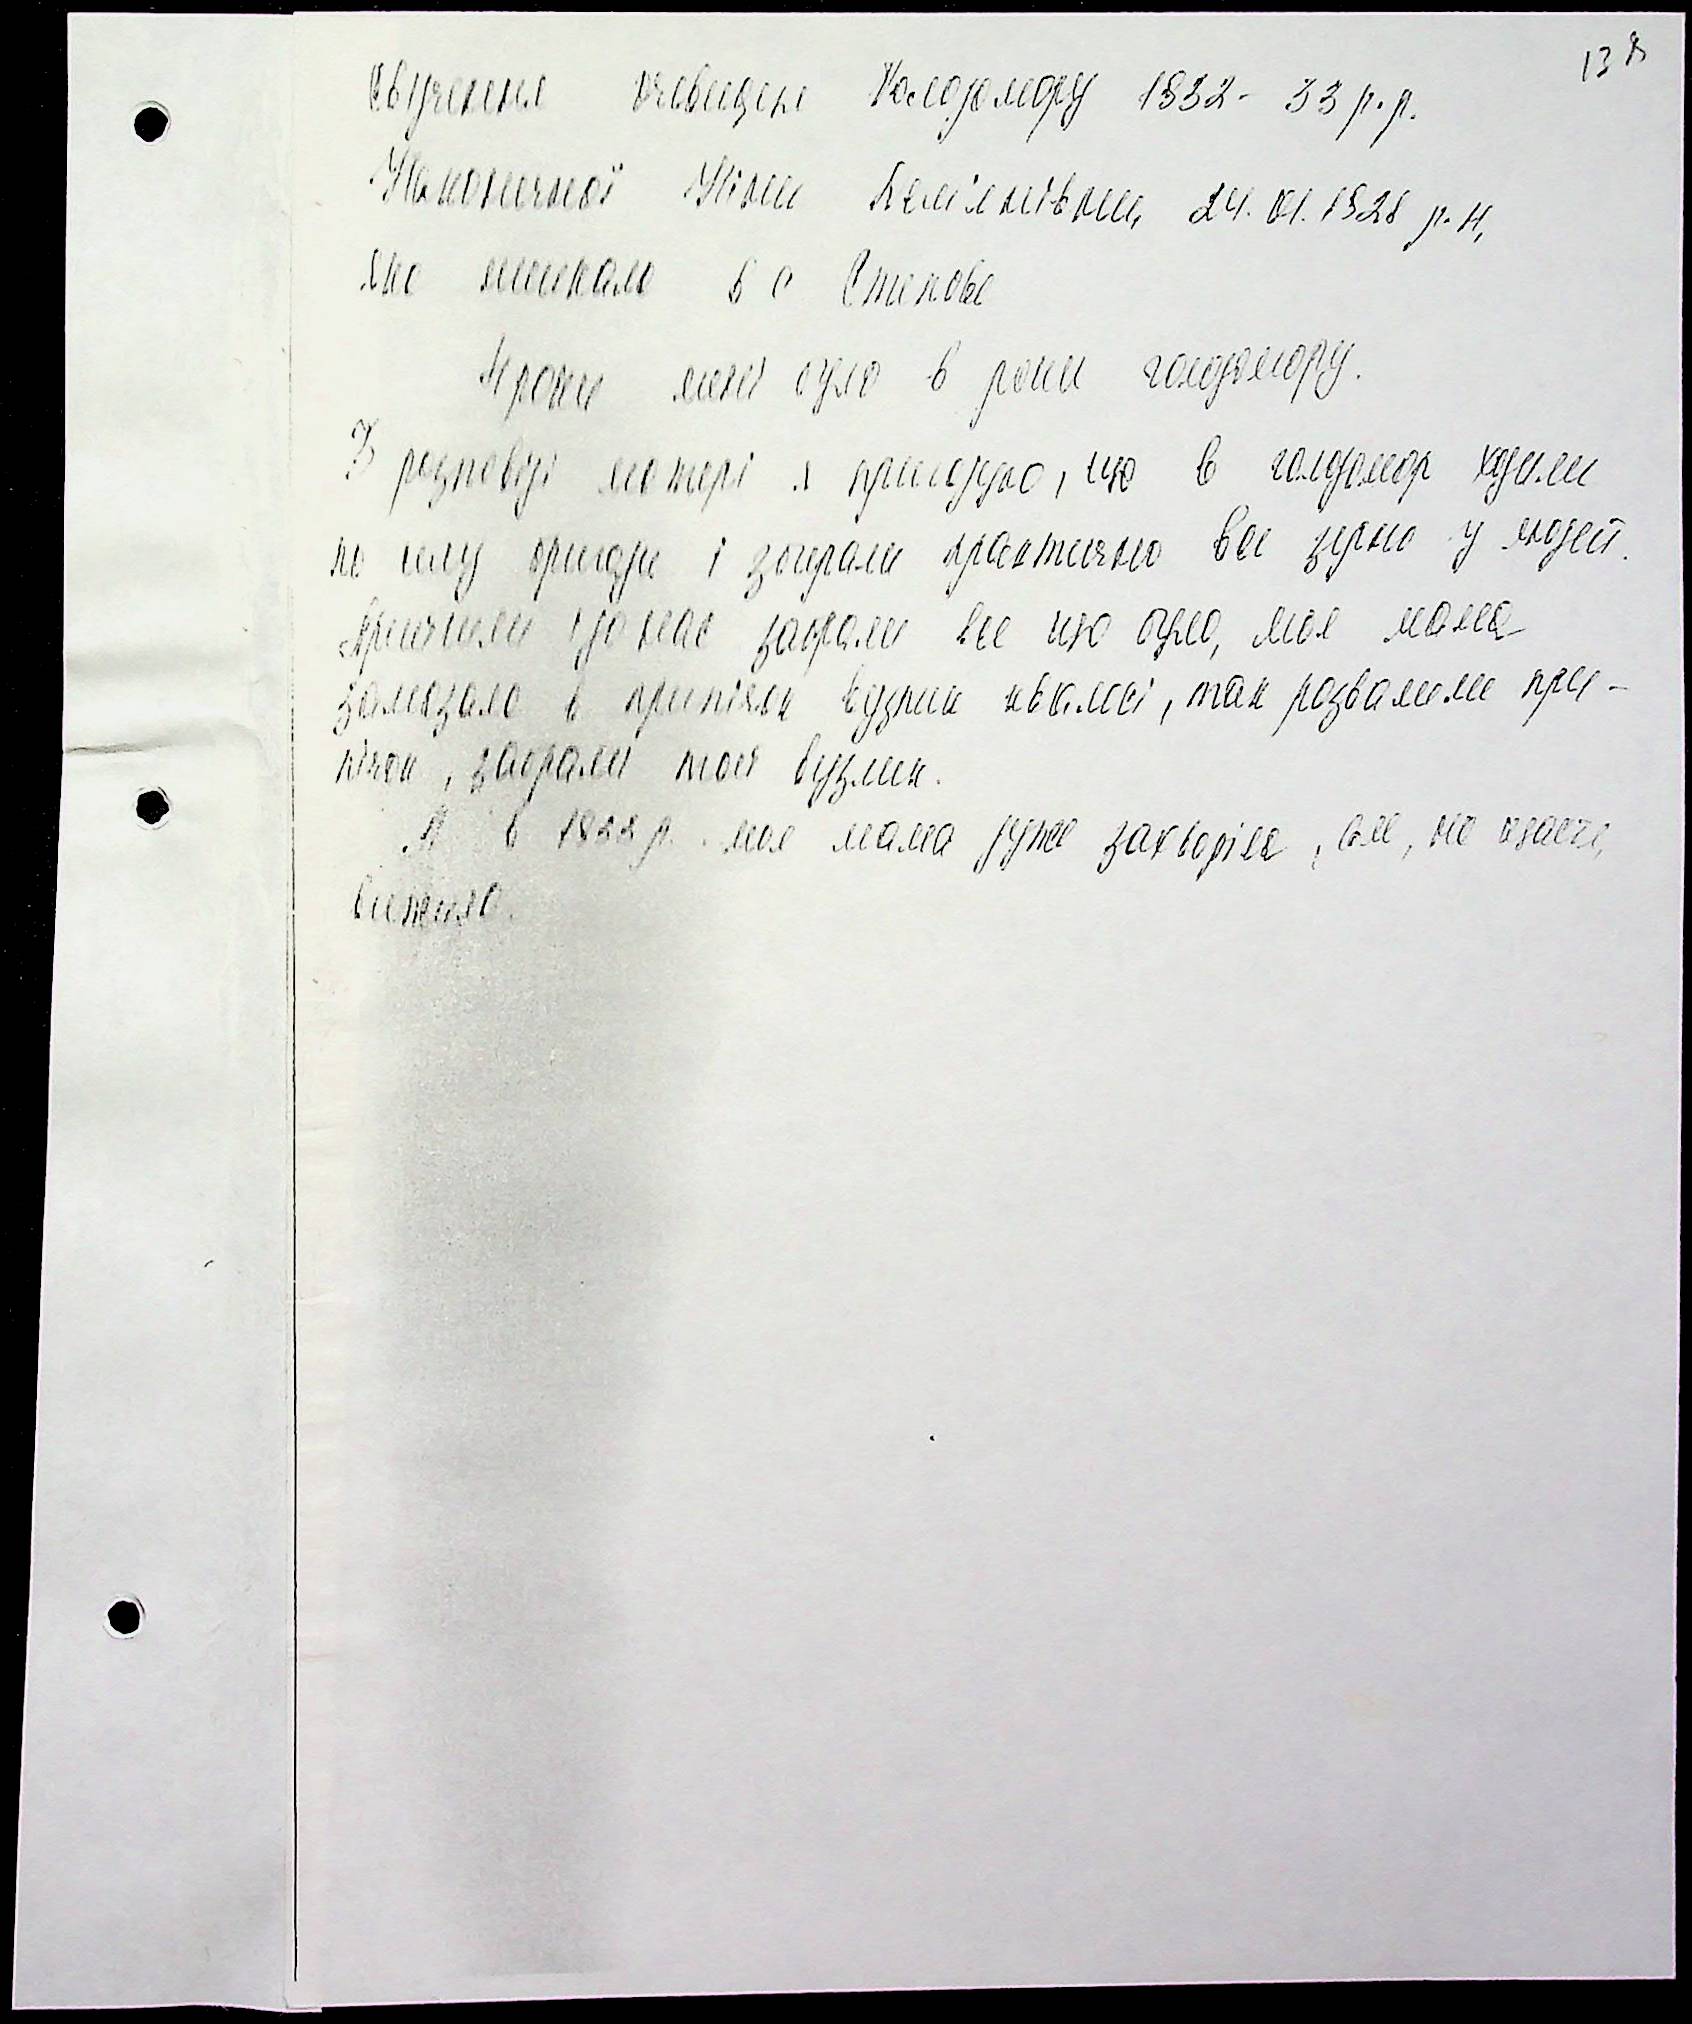 138
Свідчення очевидця Голодомору 1932-33 р.р.
Наконечної Ніни Омелянівни, 24.01.1928 р.н,
яка мешкала в с Степове
4 роки мені було в роки голодомору.
З розповіді матері я пригадую, що в голодомор ходили
по селу бригади і збирали практично все зерно у людей.
Прийшли і до нас забрали все що було, моя мама
замазала в припічок вузлик квасолі, так розвалили при-
пічок, забрали той вузлик.
А в 1933 р. моя мама дуже захворіла, але, на щастя,
вижила.